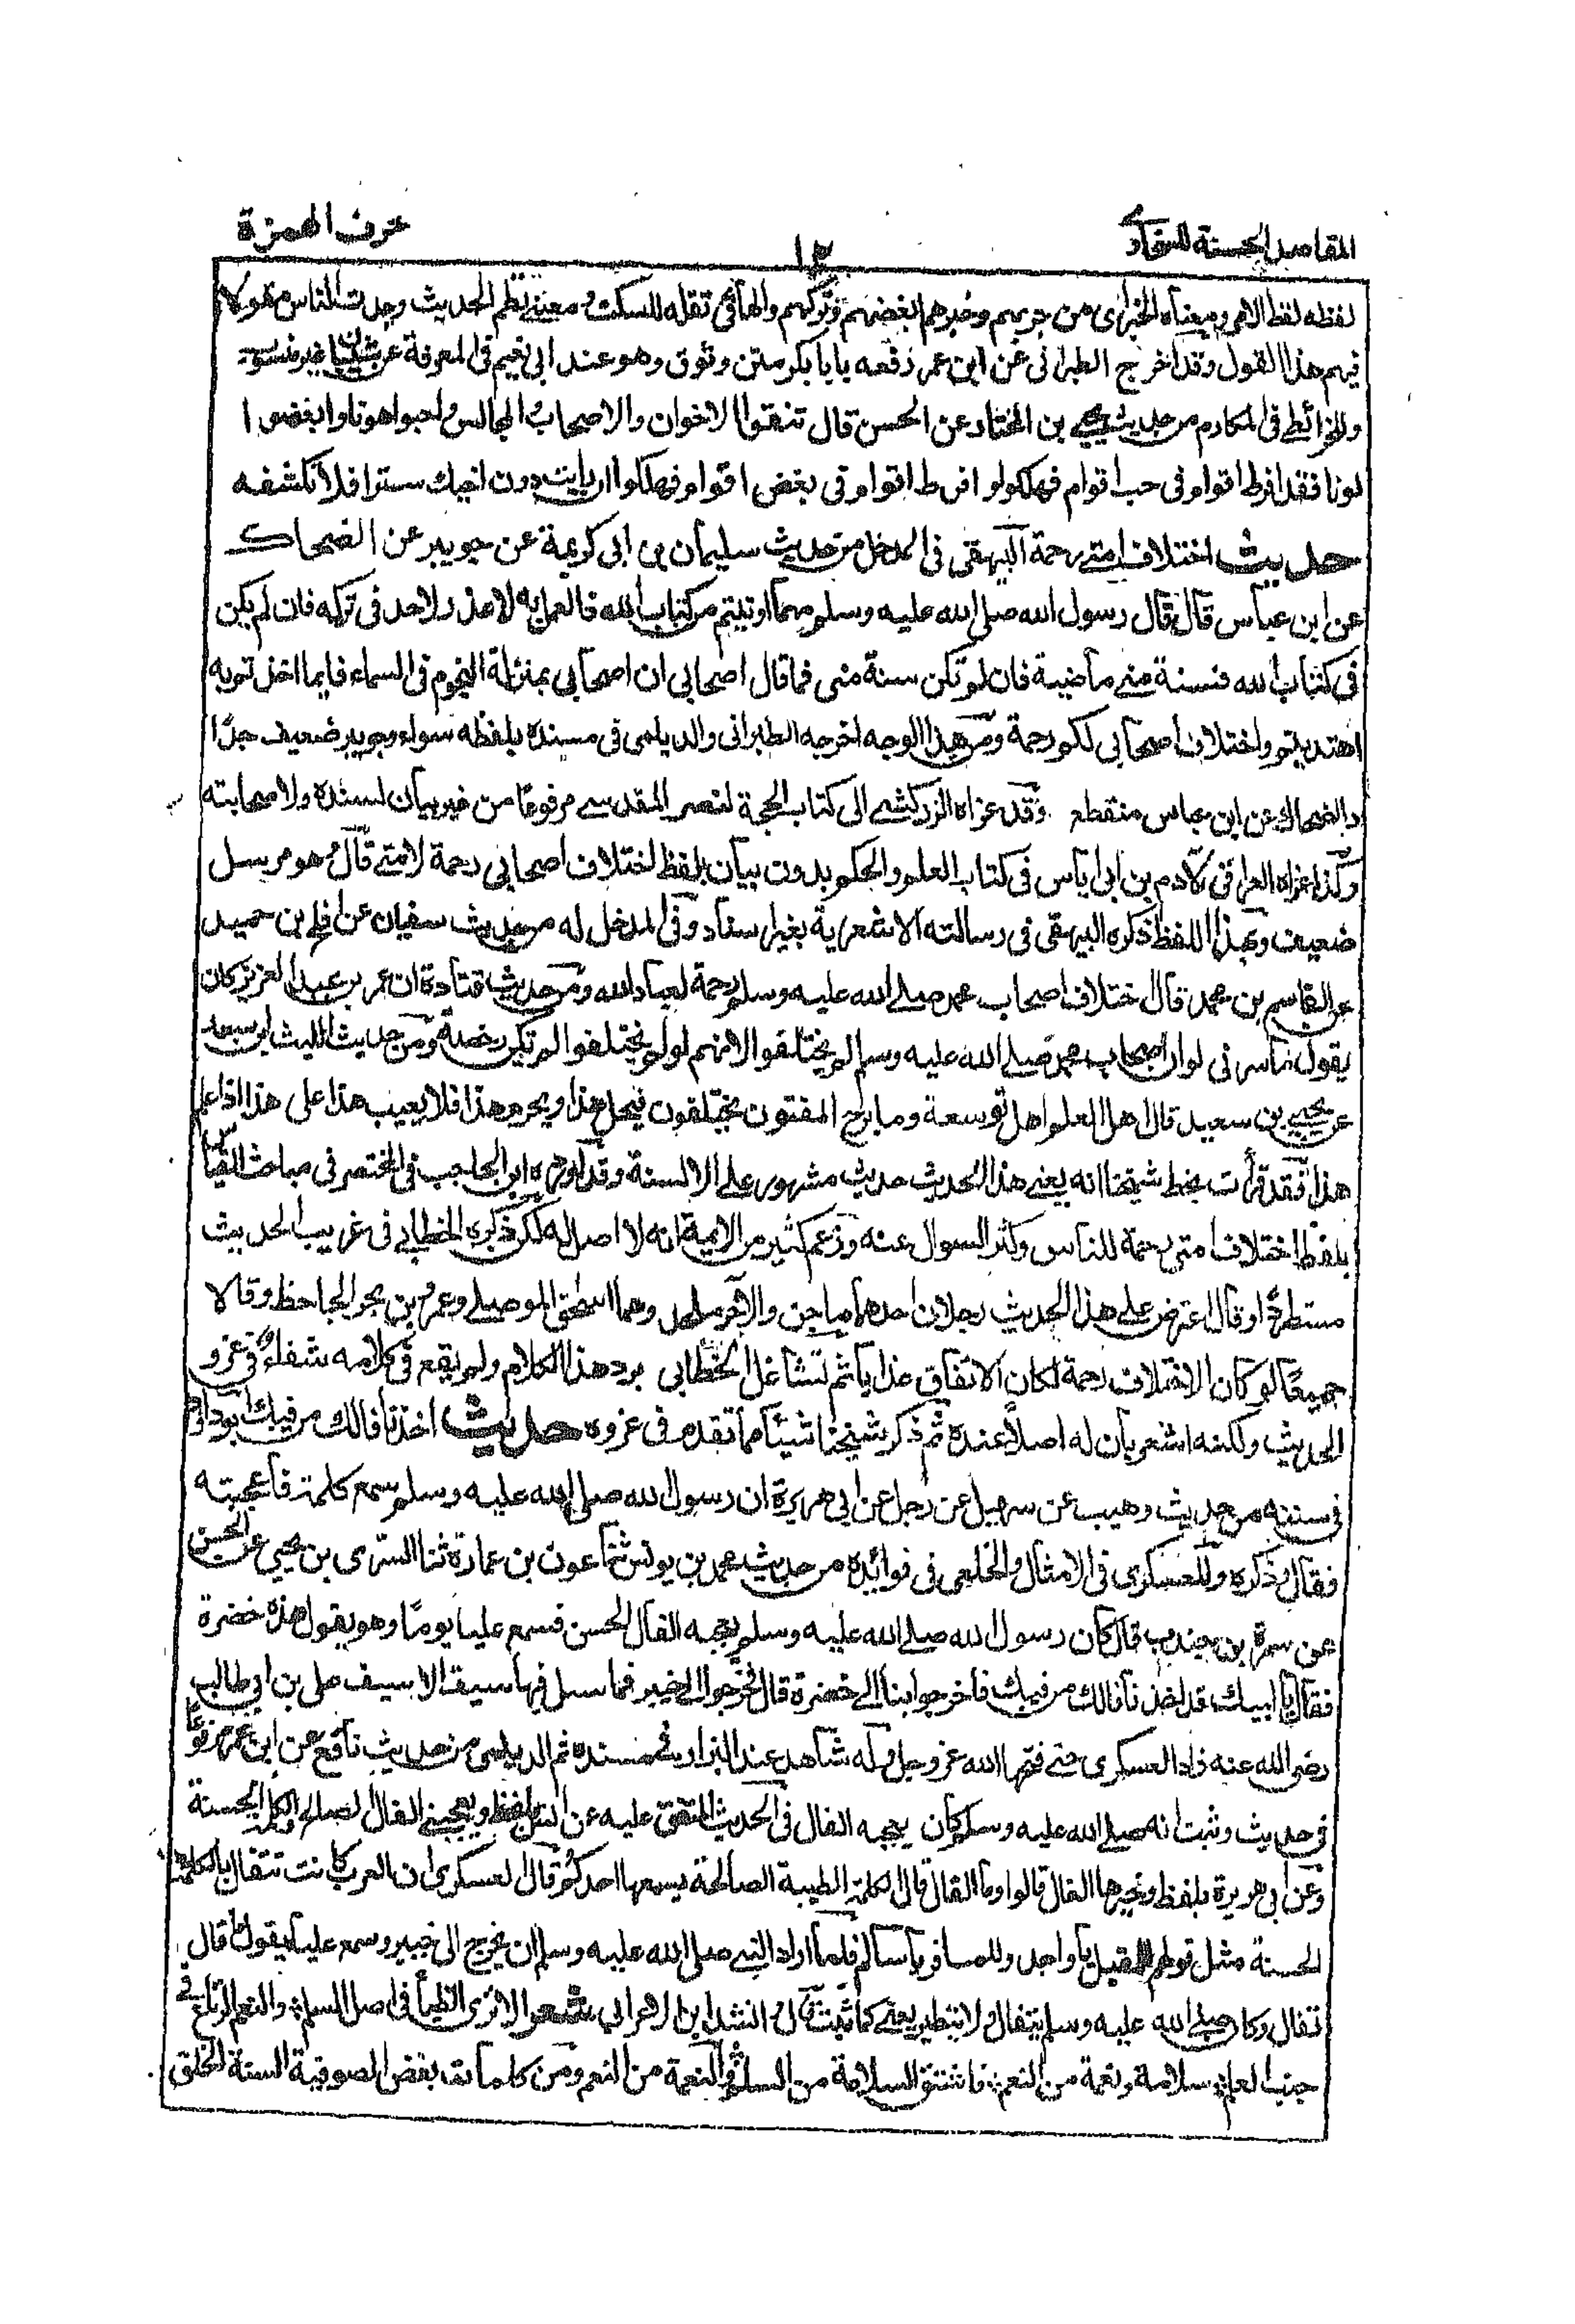 المقاصد الحسنة للسخاوى
١٢
حرف الهمزة
لفظه لفظ الامر ومعناه الخبراى من جربهم وخبرهم ابغضهم وتركهم والهآء فى تقله للسكت ومعنى نظم الحديث وجدت الناس مقولا
فيهم هذا القول وقد اخرج الطبرانى عن ابن عمر رفعه يابا بكر متن وتوق وهو عند ابى نعيم فى المعرفة عن شيبان غير منسوب
وللخرائطى فى المكارم من حديث يحيى بن المختار عن الحسن قال تنقوا الاخوان والاصحاب والمجالس واحبوا هونا وابغضوا ا
لونا فقد افرط اقوام فى حب اقوام فهلكوا و افرط اقوام فى بغض اقوام فهلكوا ان رايت دون اخيك سترا فلا تكشفه
حديث اختلاف امتى رحمة البيهقى فى المدخل من حديث سليمان بن ابى كريمة عن جويبر عن الضحاك
عن ابن عباس قال قال رسول الله صلى الله عليه وسلم مهما اوتيتم من كتاب الله فالعمل به لا عذر لاحد فى تركه فان لم يكن
فى كتاب الله فسنة منى ماضية فان لم تكن سنة منى فما قال اصحابى ان اصحابى بمنزلة النجوم فى السماء فايما اخذتم به
اهتديتم واختلاف اصحابى لكم رحمة ومن هذا الوجه اخرجه الطبرانى والديلمى فى مسنده بلفظه سواء وجويبر ضعيف جدًا
والضحاك عن ابن عباس منقطع وقد عزاه الزركشى الى كتاب الحجة لنصر المقدسى مرفوعا من غير بيان لسنده ولا صحابيته
وكذا عزاه العراقى لآدم بن ابى اياس فى كتاب العلم والحكم بدون بيان بلفظ اختلاف اصحابى رحمة لامتى قال وهو مرسل
ضعيف وبهذا اللفظ ذكره البيهقى فى رسالته الاشعرية بغير اسناد وفى المدخل له من حديث سفيان عن افلح بن حميد
عن القاسم بن محمد قال اختلاف اصحاب محمد صلى الله عليه وسلم رحمة لعباد الله ومن حديث قتادة ان عمر بن عبد العزيز كان
يقول ما سرنى لو ان اصحاب محمد صلى الله عليه وسلم لم يختلفوا لانهم لو لم يختلفوا لم تكن رخصة ومن حديث الليث ابن سعد
عن يحيى بن سعيد قال اهل العلم اهل توسعة وما برح المفتون يختلفون فيحل هذا ويحرم هذا فلا يعيب هذا على هذا اذا علم
هذا فقد قرأت بخط شيخنا انه يعنى هذا الحديث حديث مشهور على الالسنة وقد اورده ابن الحاجب فى المختصر فى مباحث القياس
بلفظ اختلاف امتى رحمة للناس وكثر السوال عنه وزعم كثير من الايمة انه لا اصل له لكن ذكره الخطابى فى غريب الحديث
مستطردًا وقال اعترض على هذا الحديث رجلان احدهما ماجن والآخر ملحد وهما اسحق الموصلى وعمرو بن بحر الجاحظ وقالا
جميعًا لو كان الاختلاف رحمة لكان الاتفاق عذابا ثم تشاغل الخطابى برد هذا الكلام ولم يقع فى كلامه شفاء فى عزو
الحديث ولكنه اشعر بان له اصلًا عنده ثم ذكر شيخنا شيئا مما تقدم فى عزوه حديث اخذنا فالك من فيك ابوداود
فى سننه من حديث وهيب عن سهيل عن رجل عن ابى هريرة ان رسول الله صلى الله عليه وسلم سمع كلمة فاعجبته
فقال وذكره وللعسكرى فى الامثال والخلعى فى فوائده من حديث محمد بن يونس ثنا عون بن عمارة ثنا السرى بن يحيى عن الحسن
عن سمرة بن جندب قال كان رسول الله صلى الله عليه وسلم يعجبه الفال الحسن فسمع عليا يومًا وهو يقول هذه خضرة
فقال يا لبيك قد اخذنا فالك من فيك فاخرجوا بنا الى خضرة قال فخرجوا الى خيبر فما سل فيها سيف الا سيف على بن ابى طالب
رضى الله عنه زاد العسكرى حتى فتحها الله عز وجل وله شاهد عند البزار فى مسنده ثم الديلمى من حديث نافع عن ابن عمر مرفوعًا
فى حديث وثبت انه صلى الله عليه وسلم كان يعجبه الفال فى الحديث المتفق عليه عن انس بلفظ ويعجبنى الفال الصالح الكلمة الحسنة
وعن ابى هريرة بلفظ وخيرها الفال قالوا وما الفال قال الكلمة الطيبة الصالحة يسمعها احدكم قال العسكرى ان العرب كانت تتفال بالكلمة
الحسنة مثل قولهم للمقبل يا واجد وللمسافر يا سالم فلما اراد النبى صلى الله عليه وسلم ان يخرج الى خيبر وسمع عليا يقول ما قال
تفال وكان صلى الله عليه وسلم يتفال ولا يتطير يعنى كما ثبت قال انشد ابن الاعرابى شعر الا ترى الظبآ فى اصل السلم والنعم الرتاع فى
جنب العلم سلامة ونعمة من النعم فاشتق السلامة من السلم والنعمة من النعم ومن كلمات بعض الصوفية السنة الخلق